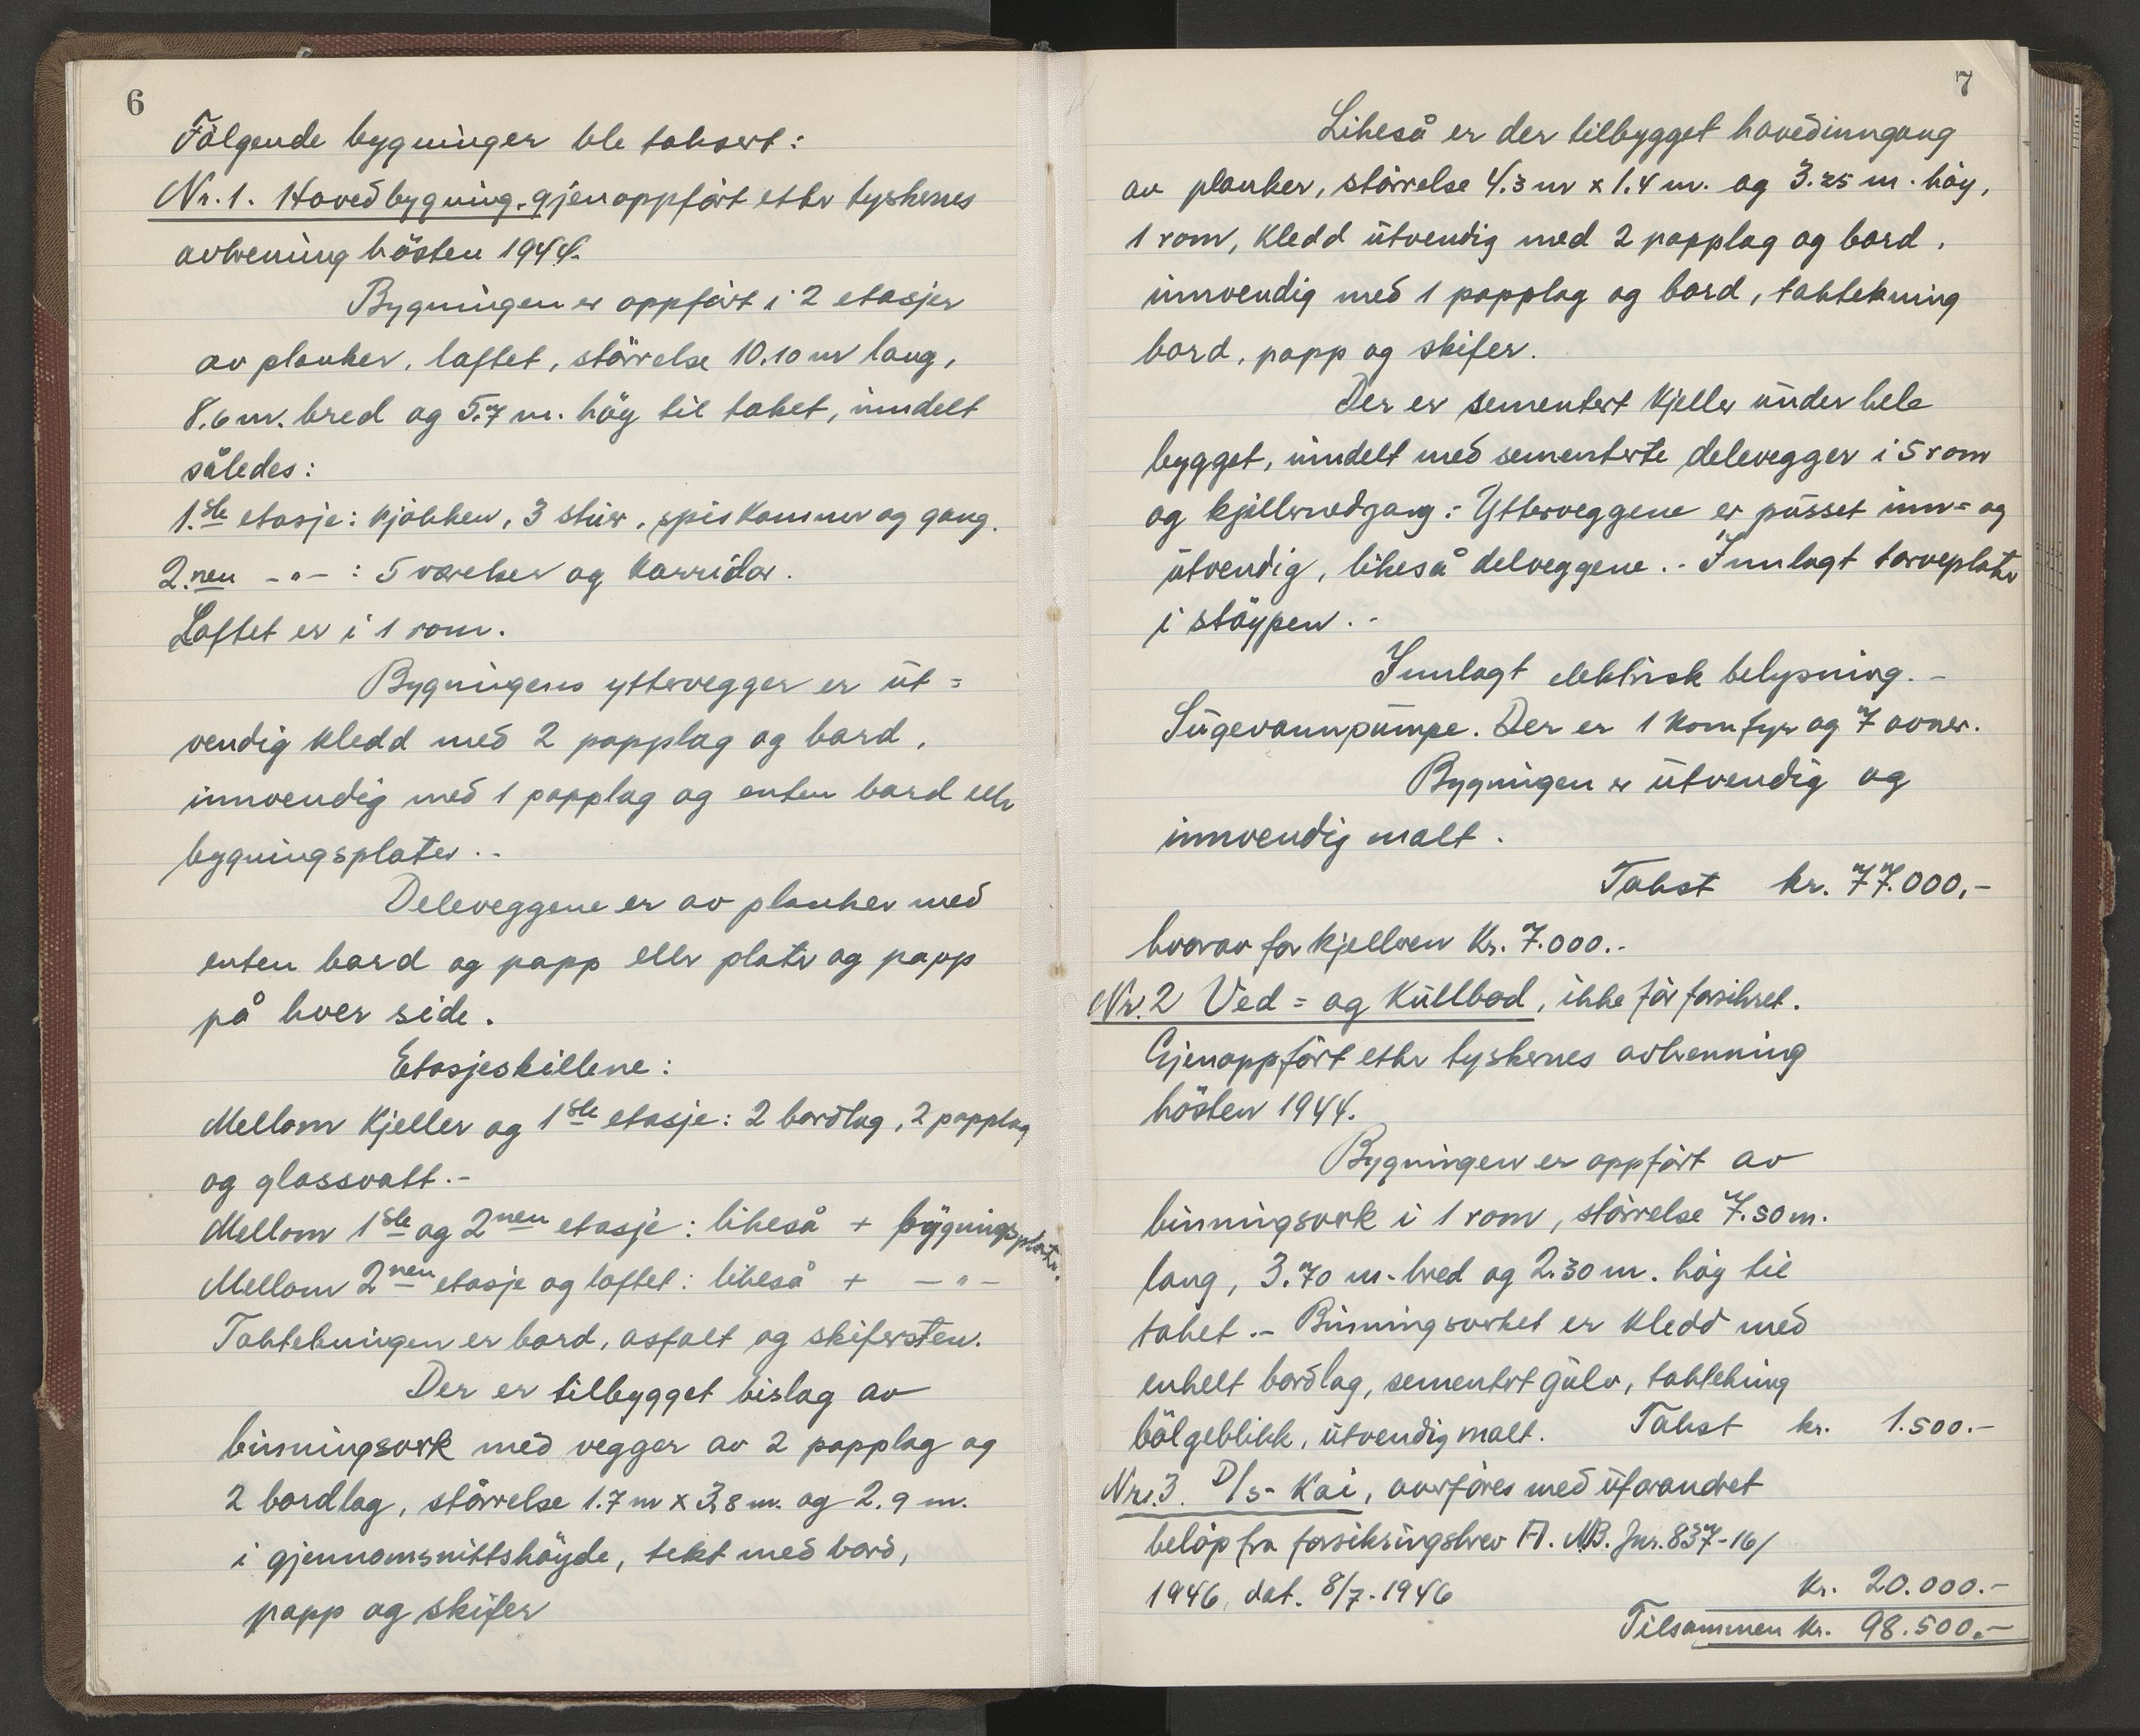 6
Følgende bygninger ble taksert:
Nr. 1. Hovedbygning. gjenoppført etter tyskernes
avbrening hösten 1944.
Bygningen er oppfört i 2 etasjer
av planker, laftet, störrelse 10.10 m lang,
8.6 m. bred og 5.7 m. hög til taket, inndelt
således:
1.ste etasje: kjökken, 3 stuer, spiskammer og gang.
2.nen -"- : 5 værelser og korridor.
Loftet er i 1 rom.
Bygningens yttervegger er ut=
vendig kledd med 2 papplag og bord,
innvendig med 1 papplag og enten bord eller
bygningsplater.-
Deleveggene er av planker med
enten bord og papp eller plater og papp
på hver side.
Etasjeskillene:
Mellom kjeller og 1ste etasje: 2 bordlag, 2 papplag
og glassvatt.-
Mellom 1ste og 2nen etasje: likeså + bygningsplater.
Mellom 2nen etasje og loftet: likeså + -"-
Taktekningen er bord, asfalt og skifersten.
Der er tilbygget bislag av
binningsverk med vegger av 2 papplag og
2 bordlag, störrelse 1.7 m x 3,8 m. og 2.9 m.
i gjennomsnittshöyde, tekt med bord,
papp og skifer
7
Likeså er der tilbygget hovedinngang
av planker, störrelse 4.3 m x 1.4 m. og 3.25 m. höy,
1 rom, kledd utvendig med 2 papplag og bord,
innvendig med 1 papplag og bord, taktekning
bord, papp og skifer.
Der er sementert kjeller under hele
bygget, inndelt med sementerte delevegger i 5 rom
og kjellernedgang:- Ytterveggene er pusset inn= og
utvendig, likeså delveggene.- Innlagt torveplater
i stöypen.-
Innlagt elektrisk belysning.-
Sugevannpumpe. Der er 1 komfyr og 7 ovner.
Bygningen er utvendig og
innvendig malt.
Takst kr. 77.000,-
hvorav for kjelleren Kr. 7.000.-
Nr. 2 Ved= og Kullbod, ikke för forsikret.
Gjenoppfört etter tyskernes avbrenning
hösten 1944.
Bygningen er oppfört av
binningsverk i 1 rom, störrelse 7.50 m.
lang, 3.70 m. bred og 2.30 m. höy til
taket.- Binningsverket er kledd med
enkelt bordlag, sementert gulv, taktekning
bölgeblikk, utvendig malt. Takst kr. 1.500.-
Nr. 3. D/S- Kai, overföres med uforandret
belöp fra forsikringsbrev A. MB. Jnr. 837-16/
1946, dat. 8/7-1946
Kr. 20.000.-
Tilsammen kr. 98.500.-